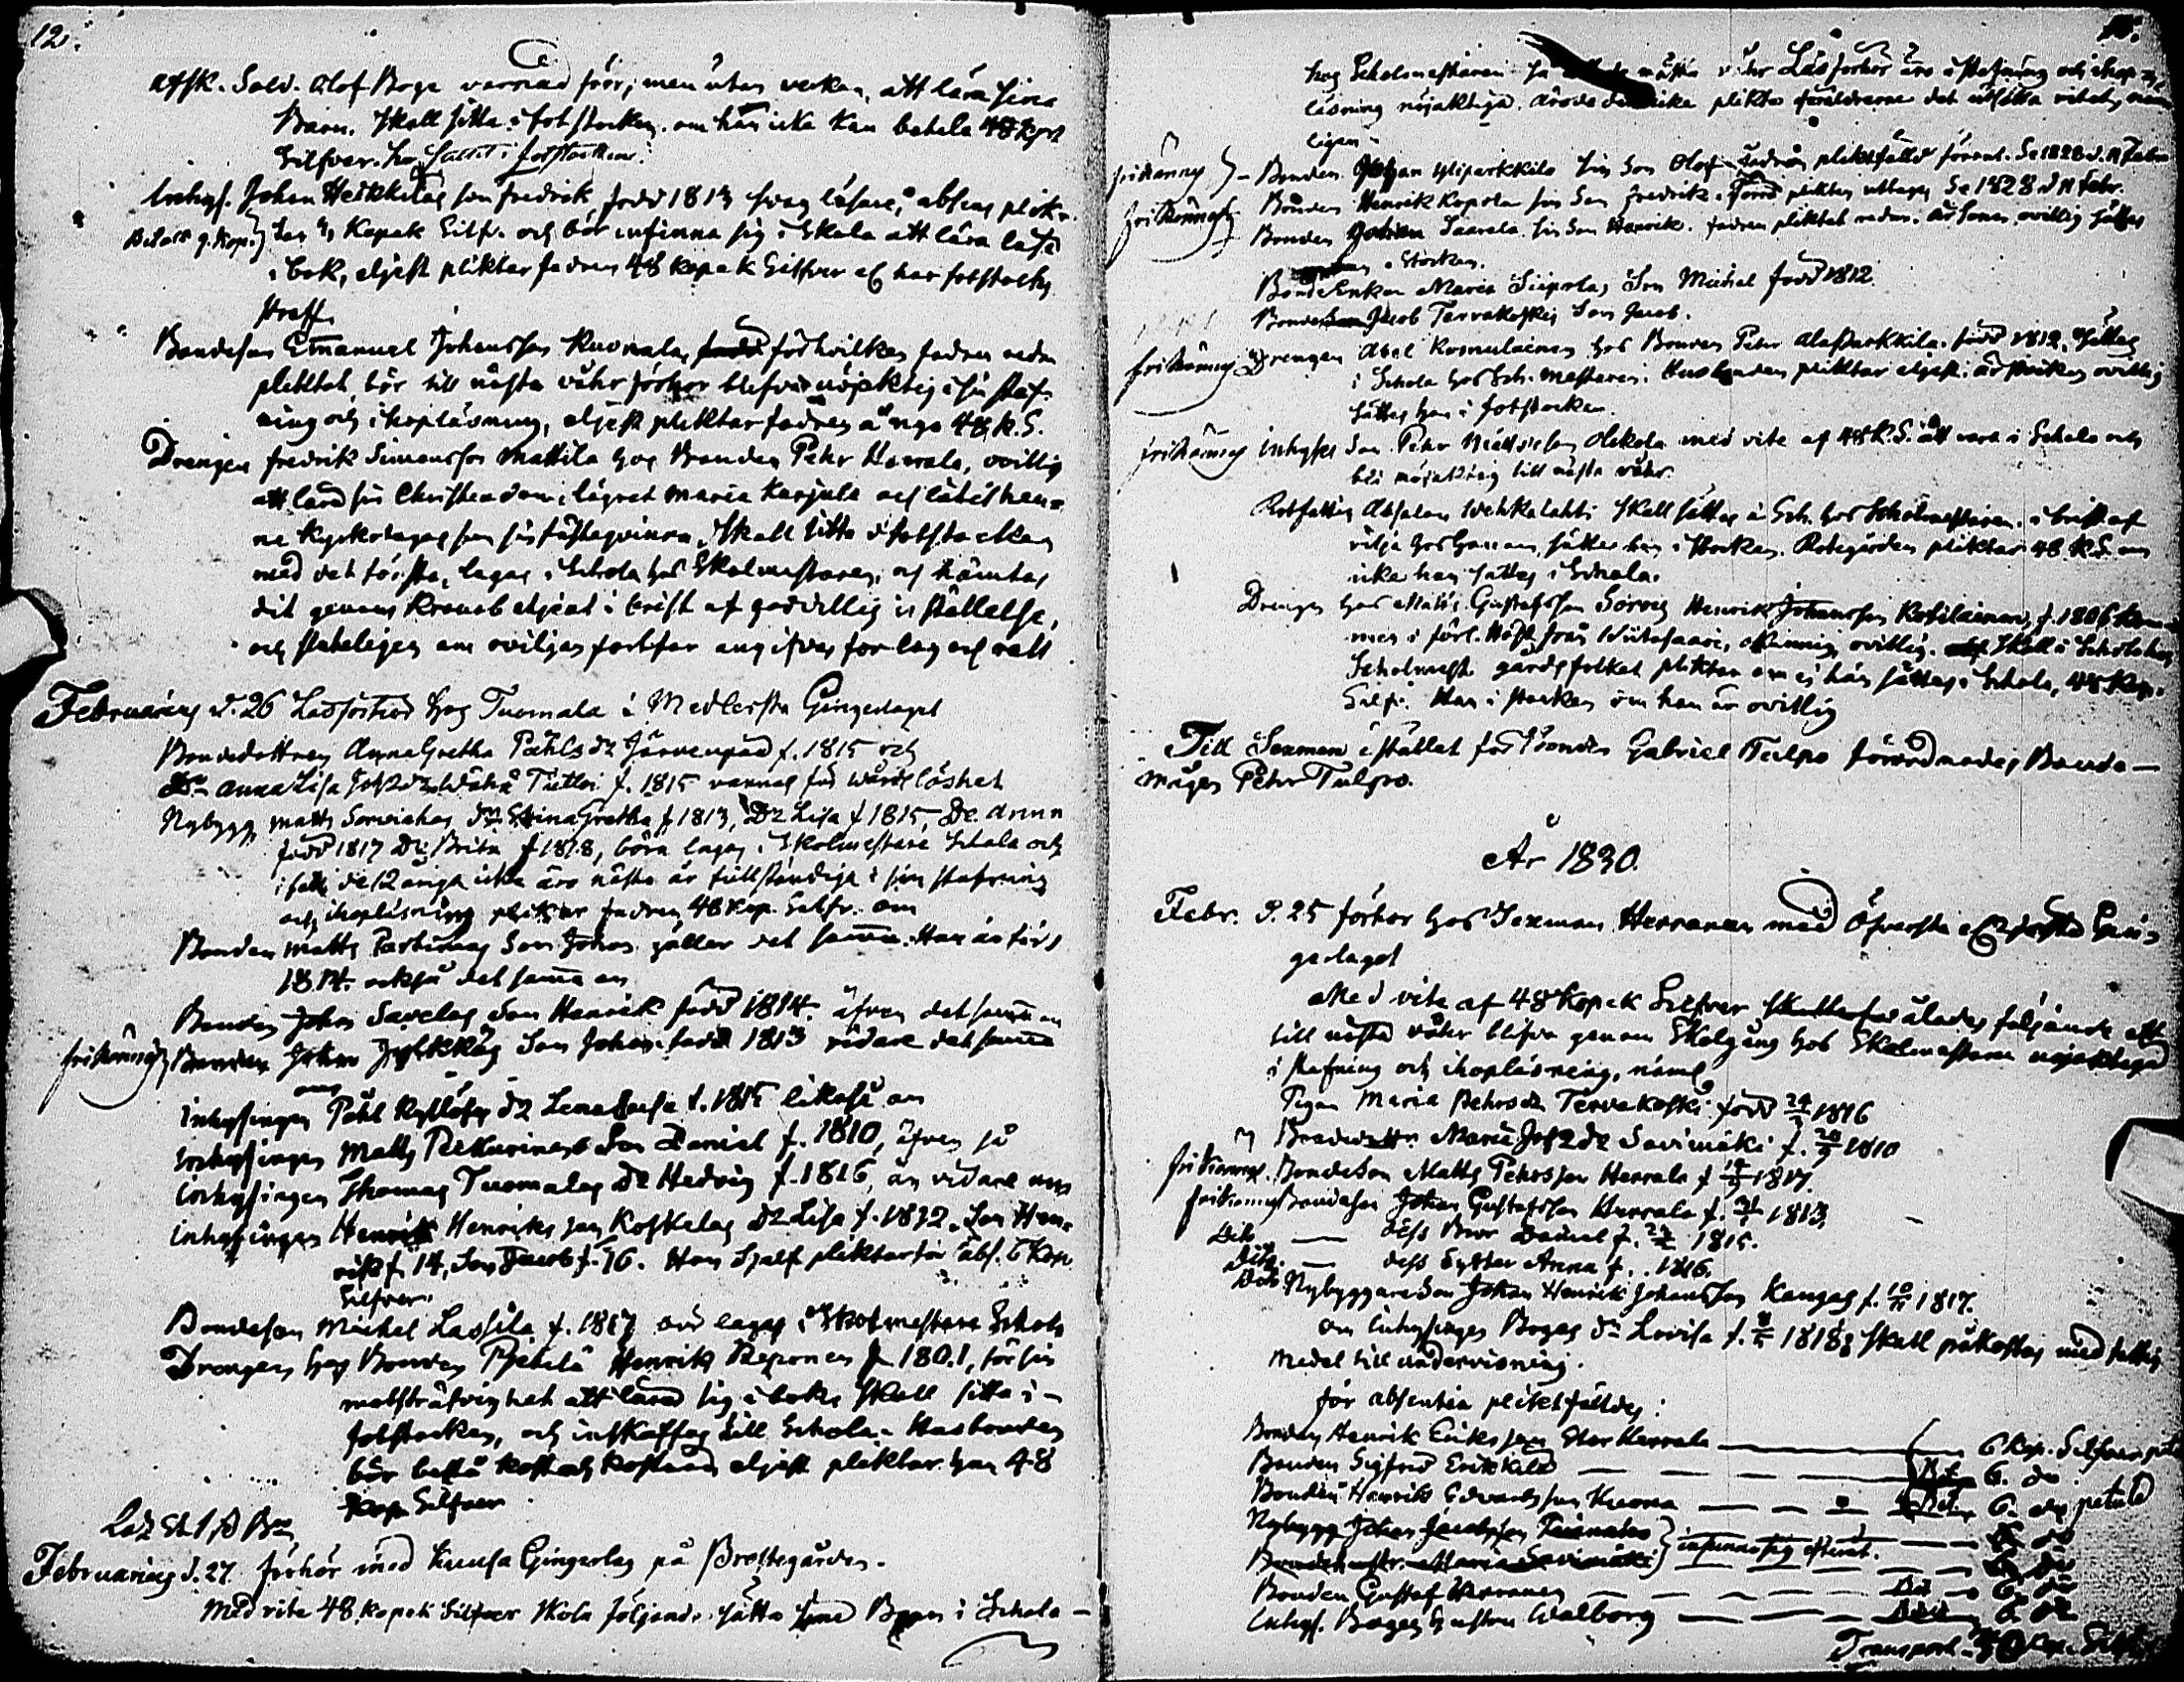 12.
afsk. Sold. Olof Boge varnad förr, men utan verkan, att lära sina
Barn. Skall sitta i fotstocken, om han icke kan betala 48 kop
Silfver. har suttit i fotstocken.
Inhys. Johan Heikkilas son Fredrik, född 1813 svag läsare, absens plik-
Betalt 9. kop. tas 9 Kopek Silfv. och bör infinna sig i Skola att lära läsa
i bok, eljest pliktar fadren 48 kopek Silfver el. har fotstocks
straff
Bondeson Emanuel Johansson Ruonala, född för hvilken fadren redan
pliktat, bör till nästa våhr förhör blifva nöjaktig i sin staf-
ning och ihopläsning, eljest pliktar fadren å nyo 48 k. S.
Drengen Fredrik Simonsson Mattila hos Bonden Pehr Herrala, ovillig
att lära sin Christendom, lägrat Maria Karjula och låtit hen-
ne kyrkotagas som sin fästeqvinna, skall sitta i fotstocken
med det första, tagas i Schola hos Skolmästaren, och hämtas
dit genom Kronobetjent i brist af godvillig inställelse,
och slutligen om oviljan fortfar angifvas för lag och rätt
Februarius d. 26 Läsförhör hos Tuomala i Medlersta Gingerlaget
Bondedottren Anna Gretha Påhlsdr Järvenpää f. 1815 och
Dr Anna Lisa Johsdr Wähä Tiitto f. 1815 varnas för wårdslöshet
Nybygg. Matts Sorvichas Dr Stina Gretha f. 1813, Dr Lisa f 1815, Dr. Anna
född 1817 Dr. Brita f 1818, böra tagas i Skolmestare Schola och
i fall de 2 äriga icke äro nästa år fullständiga i sin stafning
och ihopläsning pliktar fadren 48 kop. Silfr. om
Bonden Matts Partimas Son Johan gäller det samma. Han är född
1814. också det samma om
Bonden Johan Savelas Son Henrik född 1814. äfven det samma om
frikänns Bonden Johan Jylkkäs Son Johan född 1813 vidare det samma
om
Inhysingen Påhl Kyllösis dr Lena Lovisa f. 1815 likaså om
Inhysingen Matts Pekkarinens Son Daniel f. 1810, äfven så
Inhysingen Thomas Tuomalas Dr Hedvig f. 1816, än vidare om
Inhysingen Henrik Henriksson Koskelas Dr Lisa f. 1812. Son Hen-
rik f. 14, Son Jacob f. 16. Han Sjelf pliktar för abs. 6 Kop.
Silfver.
Bondeson Michel Lassila f. 1817 bör tagas i Skolmestare Schola
Drengen hos Bonden Pietilä Henrik Reponen f. 1801, för sin
motsträfvighet att lära sig i boks skall sitta i
fotstocken, och inskaffas till Schola. Husbonden
bör bestå kost och kostnad eljest pliktar han 48
kop Silfver
Februarius d. 27 förhör med Kuusa Gingerlag på Prostegården.
Med vite 48 kopek Silfver skola följande sätta sina Barn i Schola
hos Scholmestaren så att de måtte vid våhr Läsförhör äro i stafning och ihop-
läsning nöjaktiga. äro de det icke plikta föräldrarne det utsatta vitet, nem-
ligen
frikännes Bonden Johan Yliparkkila sin Son Olof. fadren pliktfälld förut. Se 1828 d. 11 Febr
frikännes Bonden Henrik Kopola sin Son Fredrik. förra plikten uttages Se 1828 d 11 Febr.
Bonden Johan Saarela sin Son Henrik. fadren pliktat redan. är sonen ovillig sättes
i Stocken.
Bonde Enkan Maria Siipolas Son Michel född 1812
Bonden Jacob Tervakoskis Son Jacob.
frikännes Drengen Abel Komulainen hos Bonden Pehr Alaparkkila. född 1812, sättes
i Schola hos Sch. Mestaren. Husbonden pliktar eljest. är pojken ovillig
sättes han i fotstocken.
frikännes Inhyses Son Pehr Mattsson Olkola med vite af 48 K. S. att vara i Schola och
bli nöjaktig till nästa våhr.
Rotfattig Absalon Wehkalahti skall sättas i Sch. hos Scholmestaren. i brist af
vilja hos honom, sättes han i stocken. Rotegården pliktar 48 K. S. om
icke han sättes i Schola.
Drengen hos Matts Gustafsson Sorvis Henrik Johansson Kotilainen, f. 1806 kom-
men i förl. Höst från Wiitasaari, okunnig, ovillig. skall i Schola hos
Scholmest. gårdsfolket pliktar om ej han sättes i Schola, 48 Kop.
Silfv. Han i stocken om han är ovillig
Till Sexman i stället för Bonden Gabriel Tulpo förordnades Bonde-
mågen Pehr Tulpo.
År 1830.
Febr. d. 25 förhör hos Sexman Herranen med Öfversta el. första Gin-
gerlaget
Med vite af 48 kopek Silfver ålades följande att
till nästa våhr blifva genom Skolgång hos Skolmestaren nöjaktiga
i stafning och ihopläsning, näml.
Pigan Maria Pehrsdr Tervakoski född 24/3 1816
Bondedottr. Maria Johsdr Savimäki f. 20/9 1810
frikännes. Bondeson Matts Pehrsson Herrala f 1817.
frikännes Bondeson Johan Gustafsson Herrala f. 1813
Dito — dess Bror Daniel f. 1815.
Dito. — dess Syster Anna f. 1816.
Dito Nybyggareson Johan Henrik Johansson Kangas f. 10/11 1817.
om Inhysingen Boges dr Lovisa f. 1818, skall påkostas med fattig
medel till undervisning.
för absentia pliktfälldes:
Bonden Henrik Eriksson Storherrala — 6 kop. Silfver
Bonden Sigfred Erkkilä — Bet. 6. do
Bonden Henrik Edvardsson Kuona — Bet. 6. do
Nybygg. Johan Jacobsson — 6 do
Bondedottr. Maria Savimäki } infunno sig efteråt. — 6 do
Bonden Gustaf Herranen — Bet. 6 do
Inhys. Boges hustru Walborg — 6 do
Transport 30 kop. Silf.